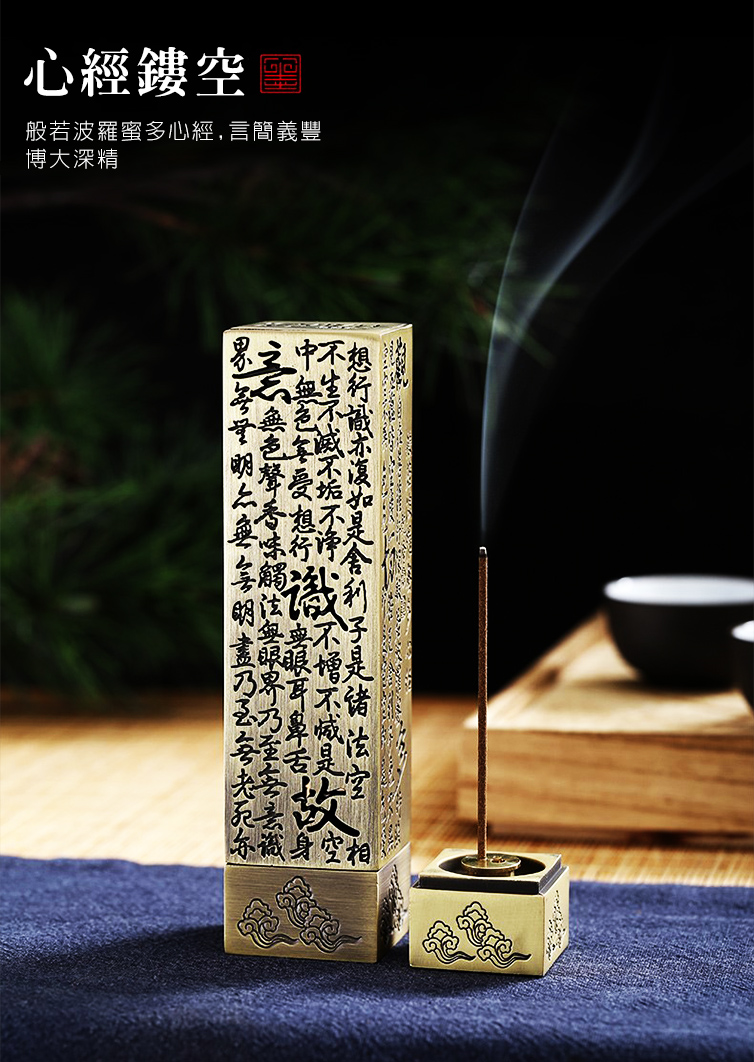 心經鏤空
般若波羅蜜多心經,言簡義豐
博大深精
想行識亦復如是舍利子是諸法空相
不生不滅不垢不淨不增不減是故空
中無色無受想行識無眼耳鼻舌身
意無色聲香味觸法無眼界乃至無意識
界無無明亦無無明盡乃至無老死亦